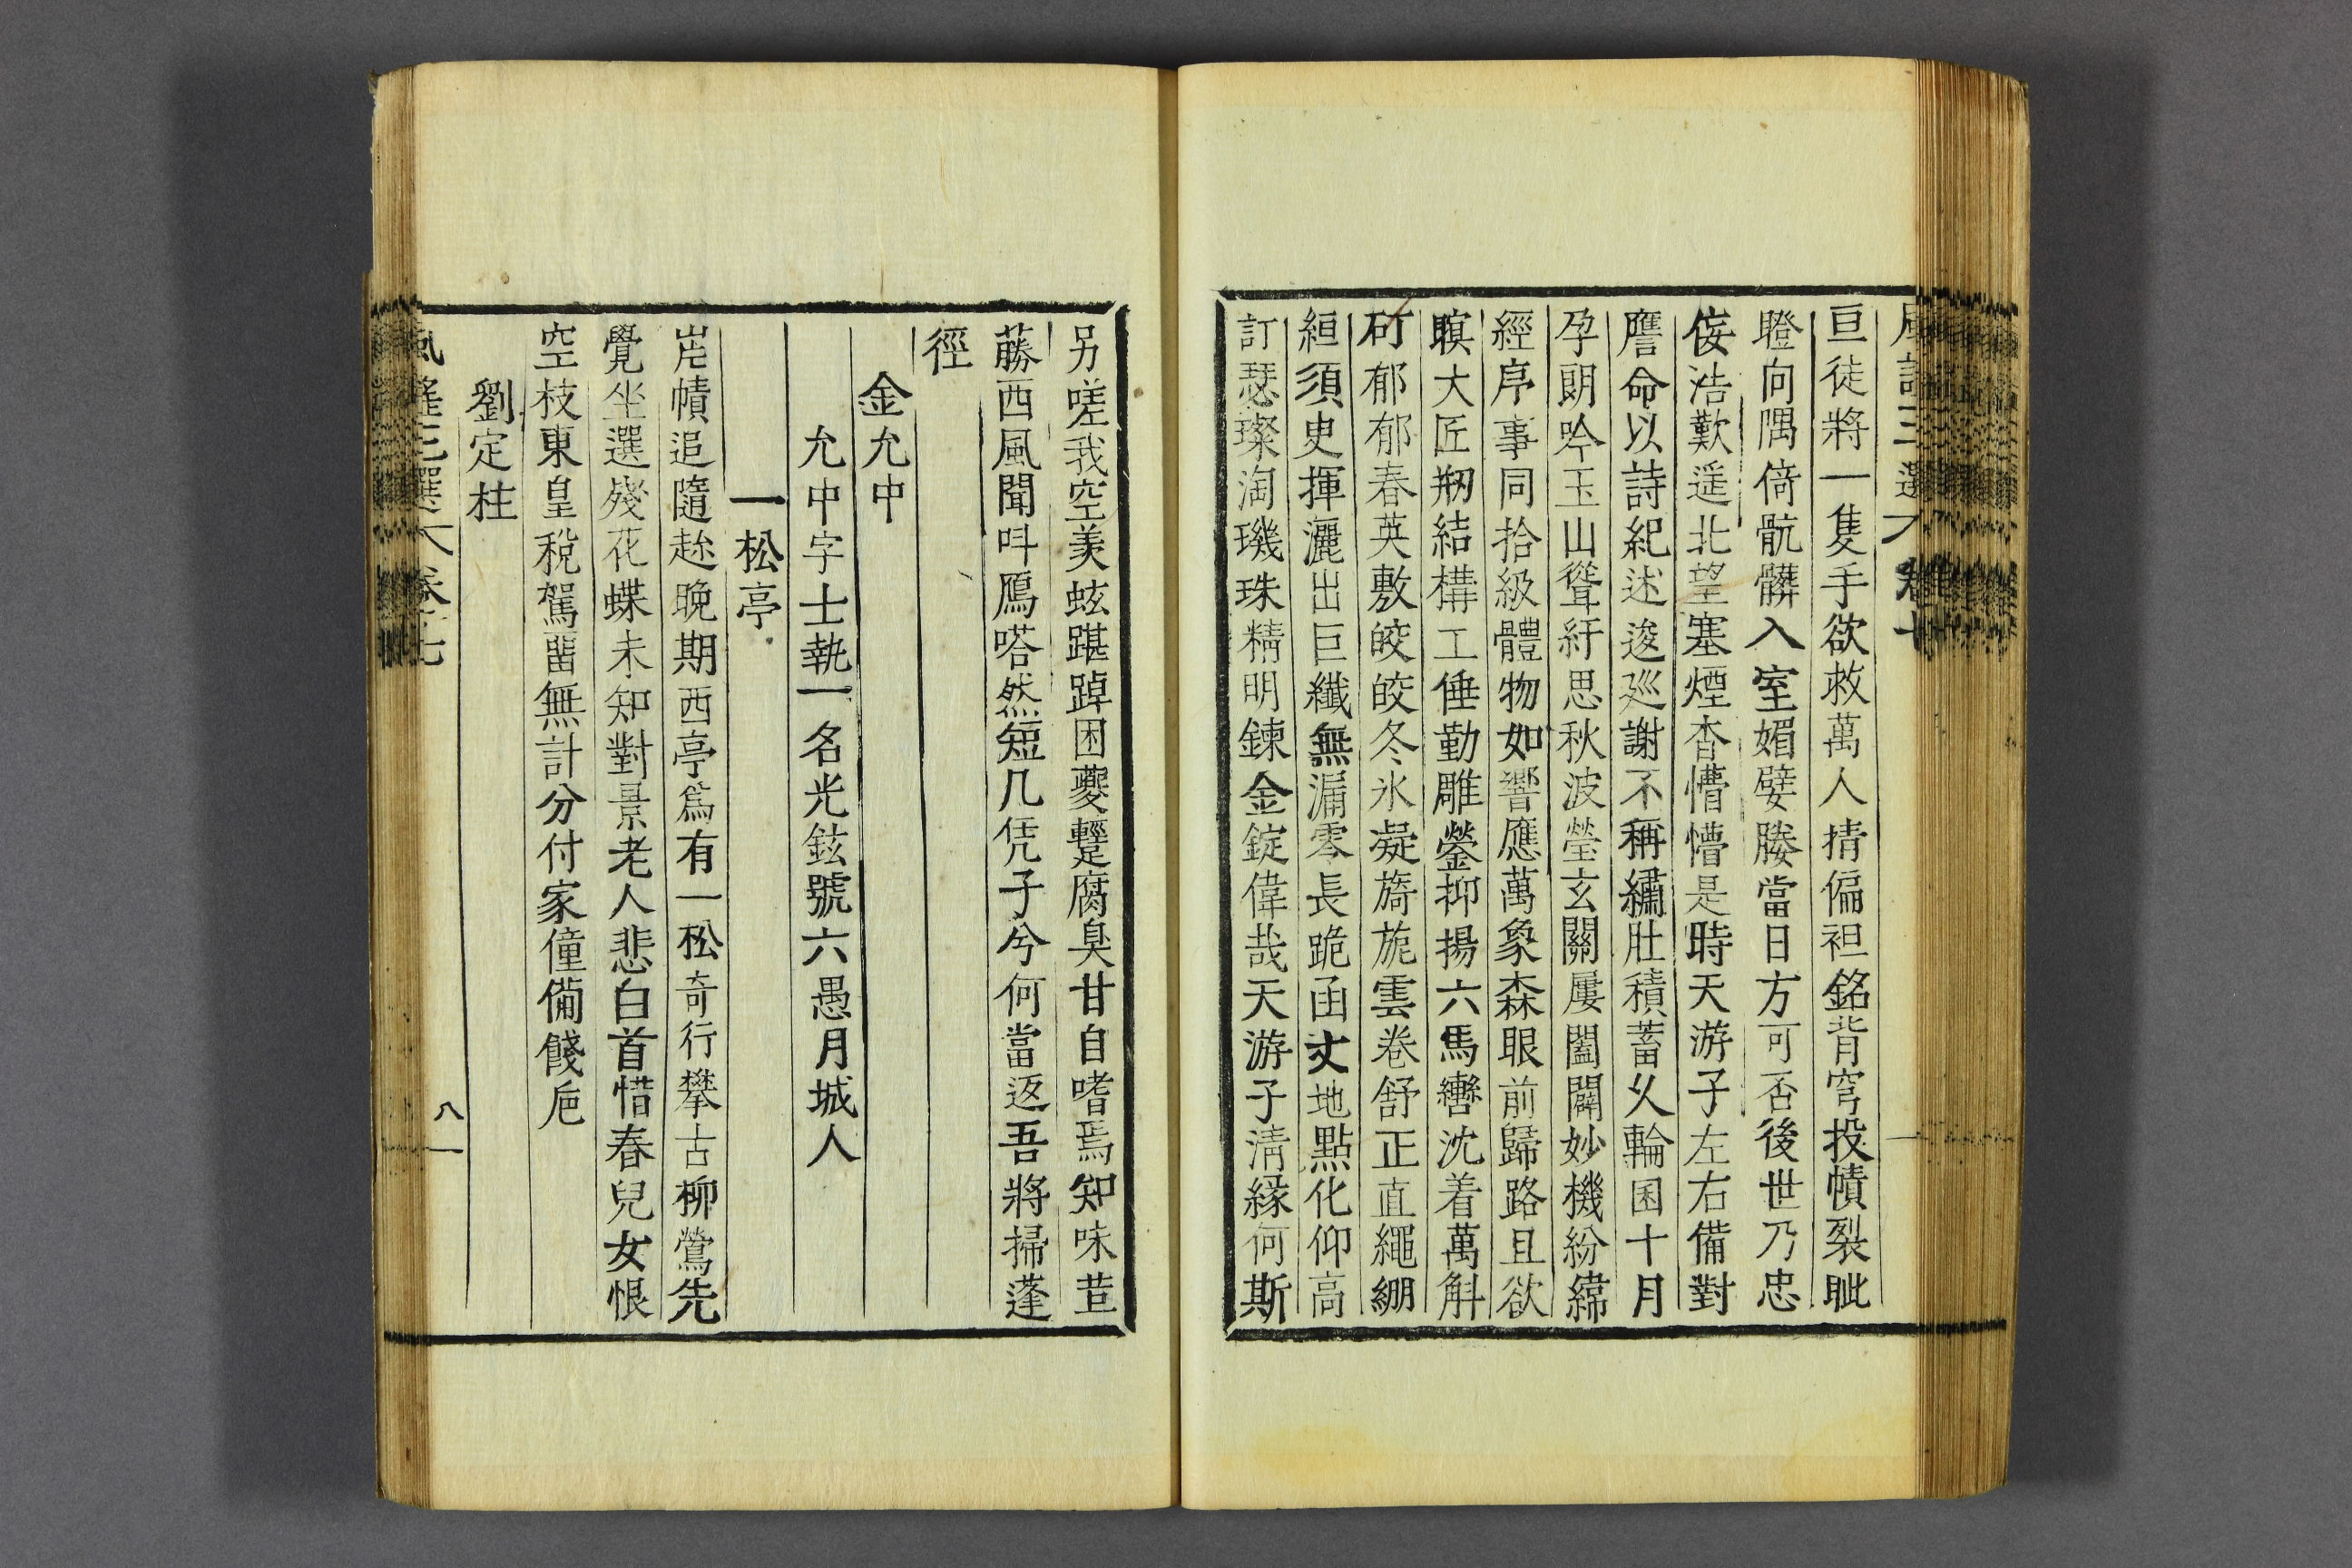 亘徒將一隻手欲救萬人猜偏袒銘背穹投幘裂眦
瞪向隅倚骯髒入室媚嬖媵當日方可否後世乃忠
侫浩歎遥北望塞煙杳懵懵是時天游子左右備對
鷹命以詩紀述逡廵謝不稱繡肚積蓄乆輪囷十月
孕朗吟玉山聳紆思秋波瑩玄關屢闔闢妙機紛繣
經序事同拾級體物如響應萬象森眼前歸路且欲
瞑大匠剏結構工倕勤雕鎣抑揚六馬轡沈着萬斛
矴郁郁春英敷皎皎冬氷凝旖旎雲卷舒正直繩綳
絙須史揮灑出巨纖無漏零長跪函丈地點化仰高
訂瑟璨淘璣珠精明鍊金錠偉哉天游子淸緣何斯
另嗟我空羨蚿踸踔困夔躄腐臭甘自嗜焉知味荁
蕂西風聞呌鴈嗒然短几凭子兮何當返吾將掃蓬
徑
金允中
允中字士執一名光鉉號六愚月城人
一松亭
岸幘追隨趂晩期西亭爲有一松奇行攀古柳鶯先
覺坐選殘花蝶未知對景老人悲白首惜春兒女恨
空枝東皇稅駕畱無計分付家僮備餞巵
劉定柱
風謠三選 卷七
八一